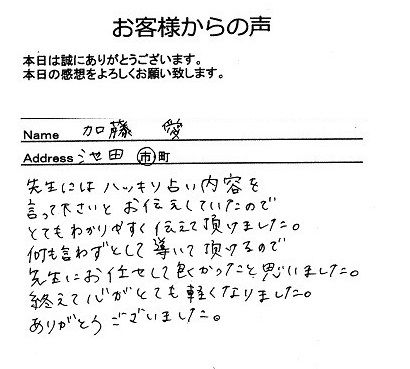 お客様からの声
本日は誠にありがとうございます。
本日の感想をよろしくお願い致します。
Name 加藤 愛
Address 池田 市町
先生にはハッキリ占い内容を
言って下さいとお伝えしていたので
とてもわかりやすく伝えて頂けました。
何も言わずとして導いて頂けるので
先生にお任せして良かったと思いました。
終えて心がとても軽くなりました。
ありがとうございました。